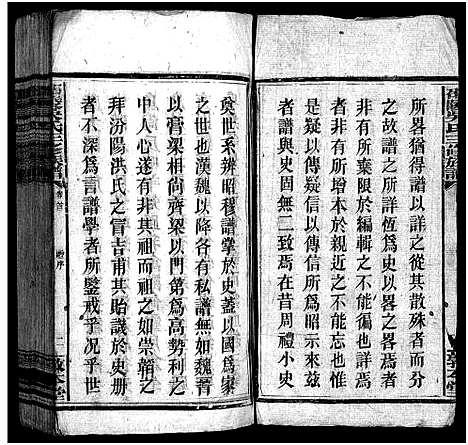 所畧猶得譜以詳之其散殊者而分
之故譜之所詳恆爲史以畧之畧焉者
者非有所棄限於編輯之不能徧也詳焉
者非有所增本於親近之不能忘也不
以傳疑傳疑信以傳信所爲昭示來兹
者譜與史固無二致焉在昔周禮小史
奠世系辨昭穆譜掌於史蓋以國爲家
之世也漢魏以降各有私譜然如魏晉
以膏梁相尚齊梁以門第爲高勢利之
中人心遂有非其祖而祖之如崇韜之
拜汾陽洪氏之冒吉甫其貽譏於史册
者不深爲言譜學者所鑒戒乎况乎世
氏三修族譜
卷首
序
敦本堂